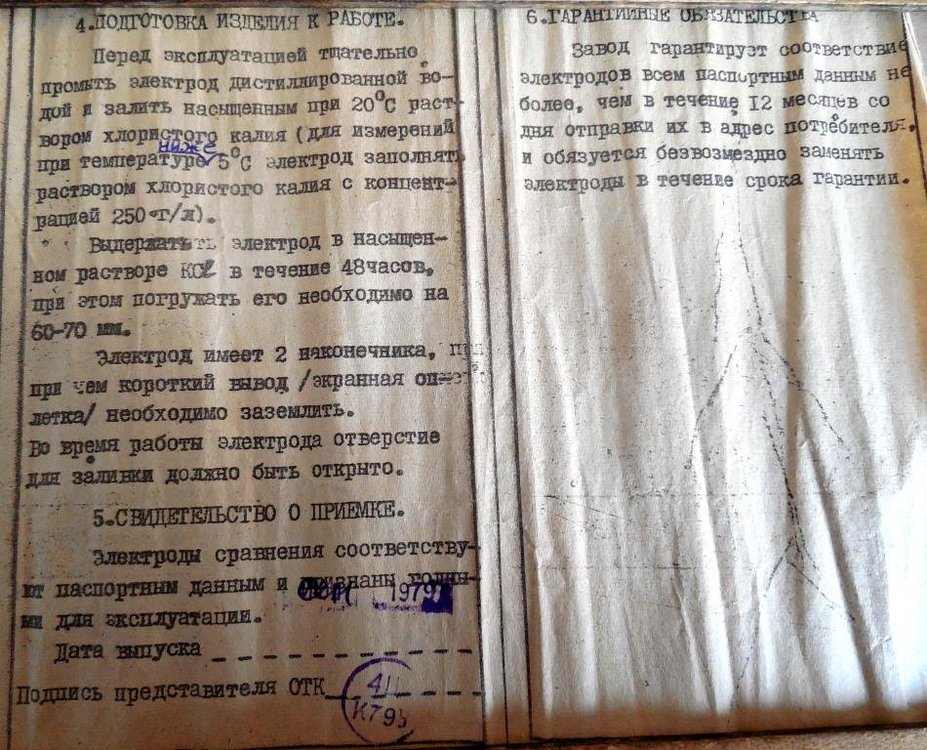 4.ПОДГОТОВКА ИЗДЕЛИЯ К РАБОТЕ.
Перед эксплуатацией тщательно
промыть электрод дистиллированной во-
дой и залить насыщенным при 20°С раст-
вором хлористого калия (для измерений
при температуре ниже 5°С электрод заполнять
раствором хлористого калия с концент-
рацией 250 г/л).
Выдержать электрод в насыщен-
ном растворе KCl в течение 48часов,
при этом погружать его необходимо на
60-70 мм.
Электрод имеет 2 наконечника,
при чем короткий вывод /экранная оп
летка/ необходимо заземлить.
Во время работы электрода отверстие
для заливки должно быть открыто.
5.СВИДЕТЕЛЬСТВО О ПРИЕМКЕ.
Электроды сравнения соответству-
ют паспортным данным и признаны годны-
ми для эксплуатации.
1979
Дата выпуска
Подпись представителя ОТК
6.ГАРАНТИЙНЫЕ ОБЯЗАТЕЛЬСТВА
Завод гарантирует соответствие
электродов всем паспортным данным не
более, чем в течение 12 месяцев со
дня отправки их в адрес потребителя,
и обязуется безвозмездно заменять
электроды в течение срока гарантии.